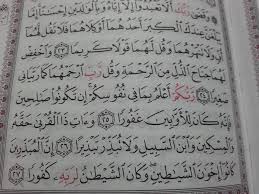 وَقَضَىٰ رَبُّكَ أَلَّا تَعْبُدُوٓا۟ إِلَّآ إِيَّاهُ وَبِٱلْوَٰلِدَيْنِ إِحْسَـٰنًا إِمَّا
يَبْلُغَنَّ عِندَكَ ٱلْكِبَرَ أَحَدُهُمَآ أَوْ كِلَاهُمَا فَلَا تَقُل لَّهُمَآ
أُفٍّ وَلَا تَنْهَرْهُمَا وَقُل لَّهُمَا قَوْلًا كَرِيمًا ٢٣ وَٱخْفِضْ
لَهُمَا جَنَاحَ ٱلذُّلِّ مِنَ ٱلرَّحْمَةِ وَقُل رَّبِّ ٱرْحَمْهُمَا كَمَا رَبَّيَانِى
صَغِيرًا ٢٤ رَّبُّكُمْ أَعْلَمُ بِمَا فِى نُفُوسِكُمْ إِن تَكُونُوا۟ صَـٰلِحِينَ
فَإِنَّهُۥ كَانَ لِلْأَوَّٰبِينَ غَفُورًا ٢٥ وَءَاتِ ذَا ٱلْقُرْبَىٰ حَقَّهُۥ
وَٱلْمِسْكِينَ وَٱبْنَ ٱلسَّبِيلِ وَلَا تُبَذِّرْ تَبْذِيرًا ٢٦ إِنَّ ٱلْمُبَذِّرِينَ
كَانُوٓا۟ إِخْوَٰنَ ٱلشَّيَـٰطِينِ وَكَانَ ٱلشَّيْطَـٰنُ لِرَبِّهِۦ كَفُورًا ٢٧